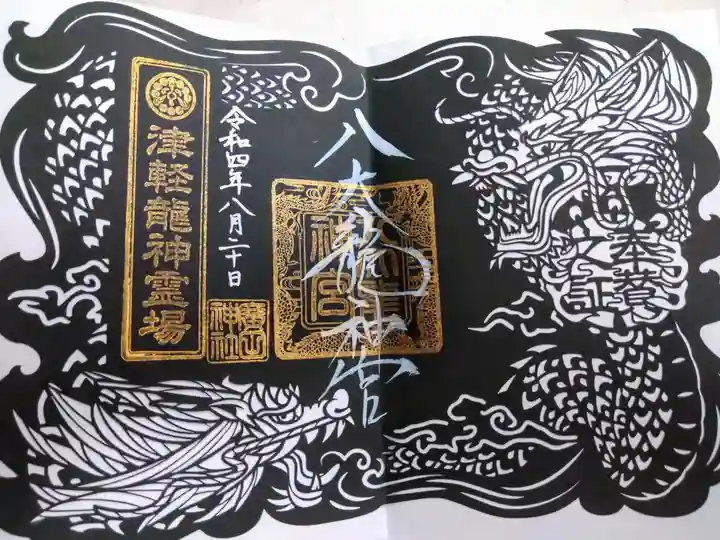 奉賛
之証
八大龍神宮
令和四年八月二十日
津軽龍神霊場